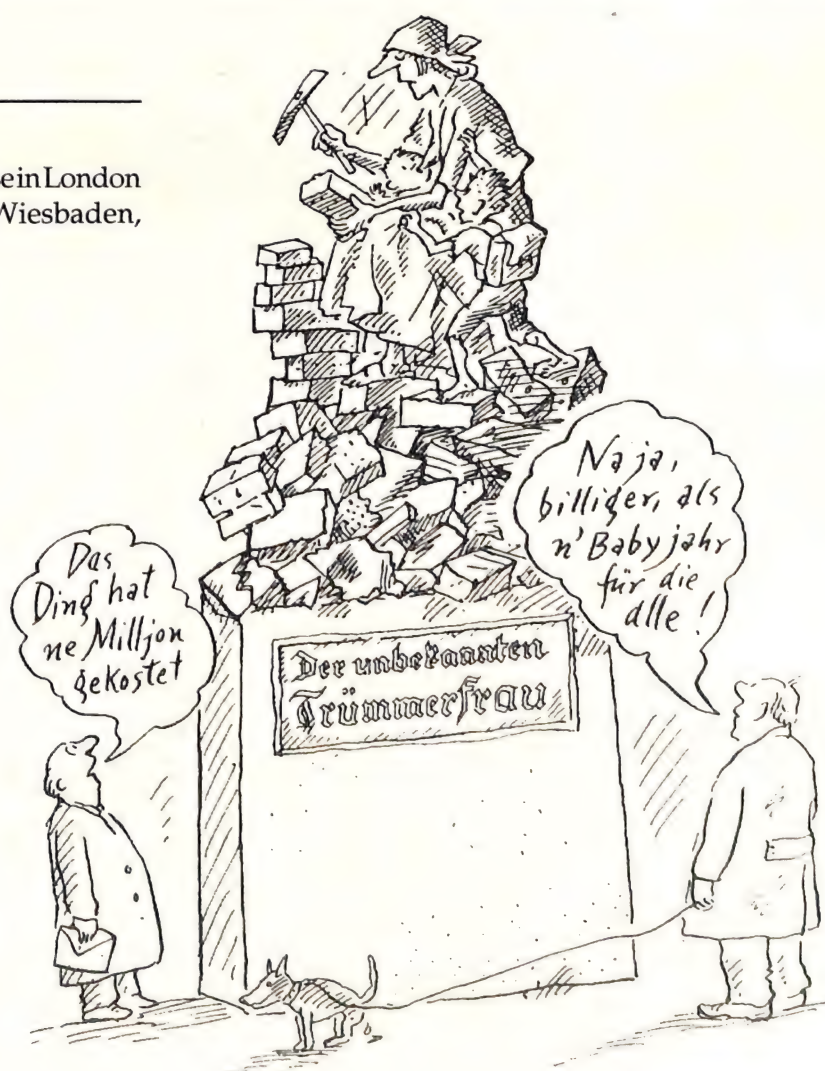 einLondon
Wiesbaden,
Das
Ding hat
ne Milljon
gekostet
Na ja,
billiger, als
n' Babyjahr
für die
alle!
Der unbekannten
Trümmerfrau